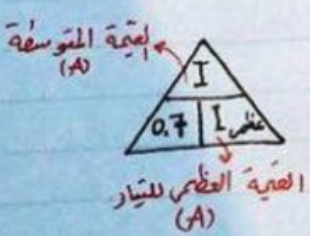 القيمة المتوسطة
(A)
I
0.7 I عظمى
القيمة العظمى للتيار
(A)